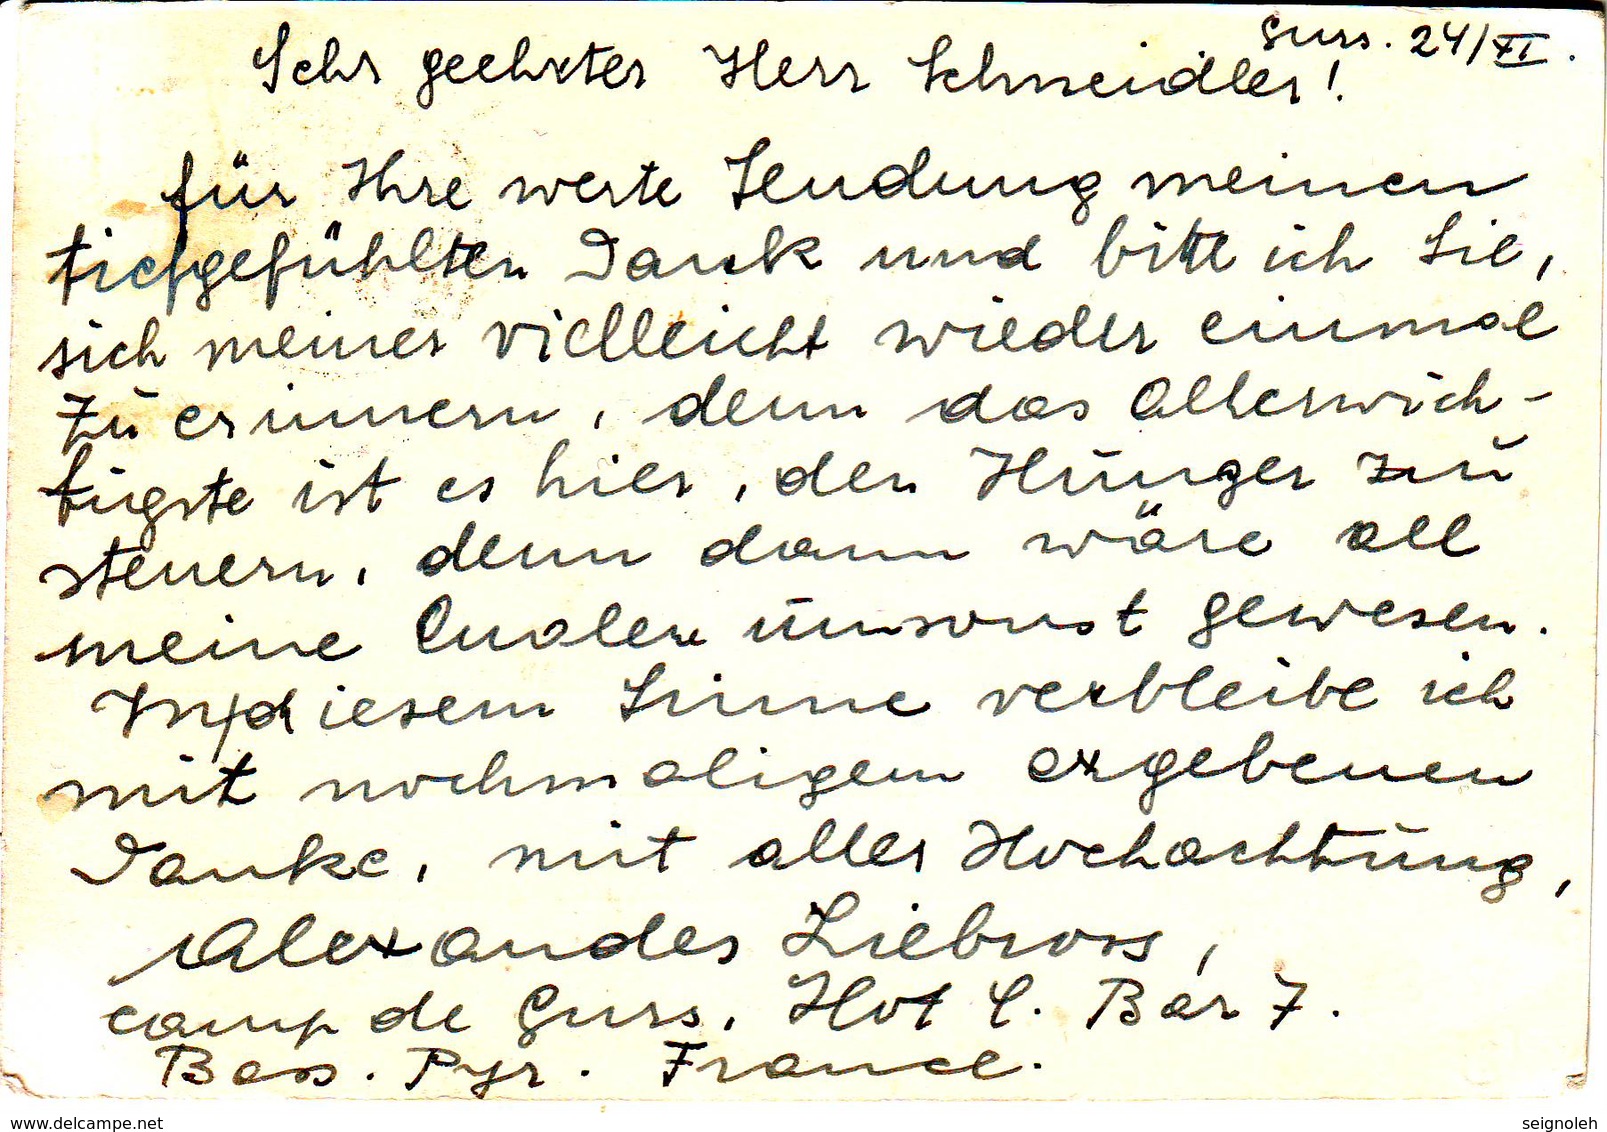 Gurs. 24/XI.
Sehr geehrter Herr Schneidler!
für Ihre werte Sendung meinen
tiefgefühlten Dank und bitte ich Sie,
sich meiner vielleicht wieder einmal
zu erinnern, denn das Allerwich-
tigste ist es hier, den Hunger zu
steuern, denn dann wäre all
meine Qualen umsonst gewesen.
In diesem Sinne verbleibe ich
mit nochmaligem ergebenen
Danke, mit aller Hochachtung,
Alexander Liebross,
camp de Gurs, Ilot C. Bar 7.
Bass. Pyr. France.
www.delcampe.net
seignoleh